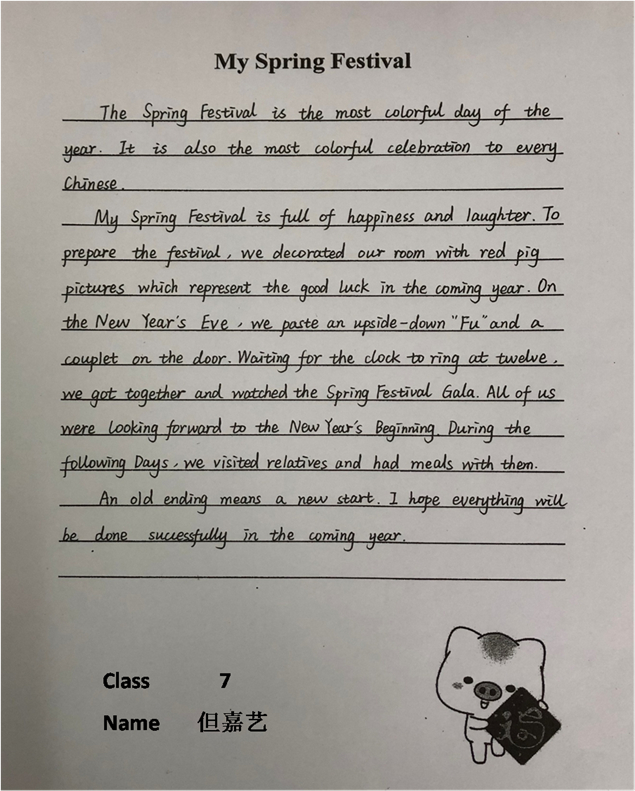 My Spring Festival
The Spring Festival is the most colorful day of the
year. It is also the most colorful celebration to every
Chinese.
My Spring Festival is full of happiness and laughter. To
prepare the festival, we decorated our room with red pig
pictures which represent the good luck in the coming year. On
the New Year's Eve, we paste an upside-down "Fu" and a
couplet on the door. Waiting for the clock to ring at twelve,
we got together and watched the Spring Festival Gala. All of us
were looking forward to the New Year's Beginning. During the
following Days, we visited relatives and had meals with them.
An old ending means a new start. I hope everything will
be done sucessfully in the coming year.
福
Class 7
Name 但嘉艺